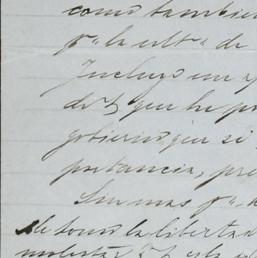 como tambien
pª la ultª de
Incluyo un
de q que he p
gobierno, que si
portancia, pre
Sin mas pª
de tomo la libertad
molestar